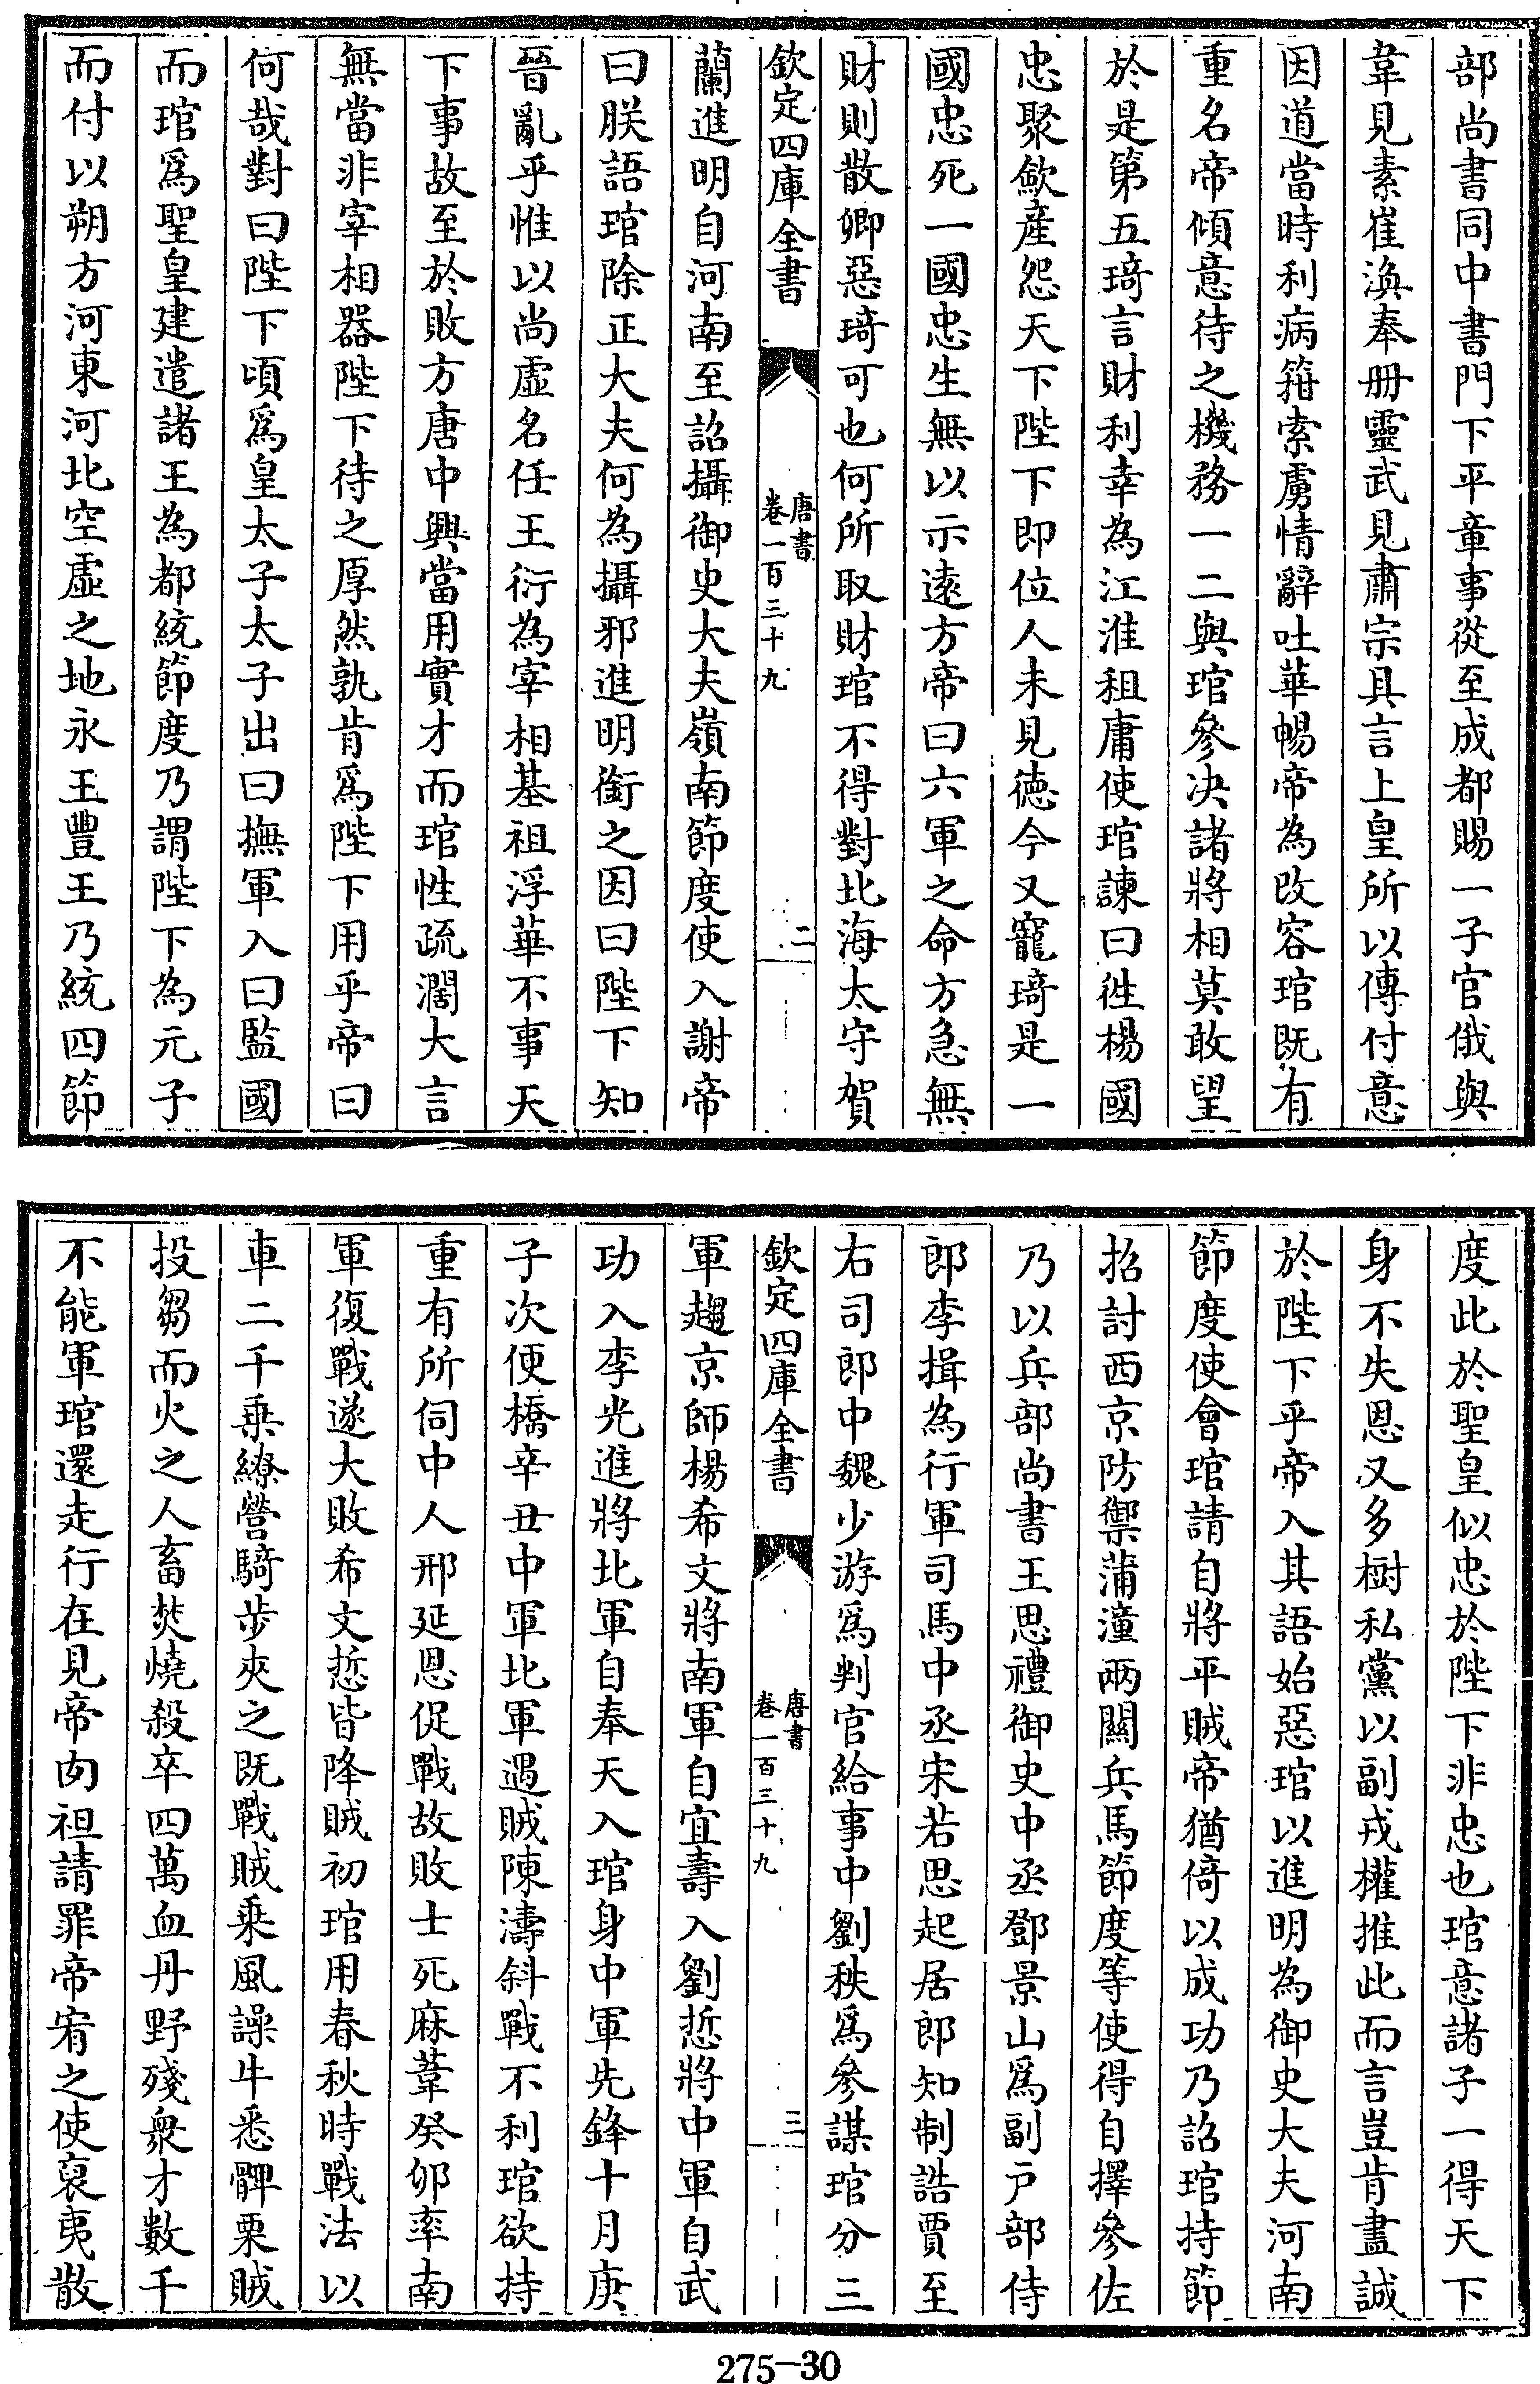 部尚書同中書門下平章事從至成都賜一子官俄與
韋見素崔渙奉册靈武見肅宗具言上皇所以傳付意
因道當時利病箝索虜情辭吐華暢帝為改容琯既有
重名帝傾意待之機務一二與琯參决諸將相莫敢望
於是第五琦言財利幸為江淮租庸使琯諫曰徃楊國
忠聚斂産怨天下陛下即位人未見徳今又寵琦是一
國忠死一國忠生無以示逺方帝曰六軍之命方急無
財則散卿惡琦可也何所取財琯不得對北海太守賀
欽定四庫全書
唐書
卷一百三十九
二
蘭進明自河南至詔攝御史大夫嶺南節度使入謝帝
曰朕語琯除正大夫何為攝邪進明銜之因曰陛下知
晉亂乎惟以尚虛名任王衍為宰相基祖浮華不事天
下事故至於敗方唐中興當用實才而琯性疏濶大言
無當非宰相器陛下待之厚然孰肯爲陛下用乎帝曰
何哉對曰陛下頃爲皇太子太子出曰撫軍入曰監國
而琯爲聖皇建遣諸王為都統節度乃謂陛下為元子
而付以朔方河東河北空虛之地永王豐王乃統四節
度此於聖皇似忠於陛下非忠也琯意諸子一得天下
身不失恩又多樹私黨以副戎權推此而言豈肯盡誠
於陛下乎帝入其語始惡琯以進明為御史大夫河南
節度使會琯請自將平賊帝猶倚以成功乃詔琯持節
招討西京防禦蒲潼兩關兵馬節度等使得自擇參佐
乃以兵部尚書王思禮御史中丞鄧景山爲副户部侍
郎李揖為行軍司馬中丞宋若思起居郎知制誥賈至
右司郎中魏少游爲判官給事中劉秩爲參謀琯分三
欽定四庫全書
唐書
卷一百三十九
三
軍趨京師楊希文將南軍自宜壽入劉悊將中軍自武
功入李光進將北軍自奉天入琯身中軍先鋒十月庚
子次便橋辛丑中軍北軍遇賊陳濤斜戰不利琯欲持
重有所伺中人邢延恩促戰故敗士死麻葦癸卯率南
軍復戰遂大敗希文悊皆降賊初琯用春秋時戰法以
車二千乗繚營騎步夾之既戰賊乗風譟牛悉髀栗賊
投芻而火之人畜焚燒殺卒四萬血丹野殘衆才數千
不能軍琯還走行在見帝肉袒請罪帝宥之使裒夷散
275-30